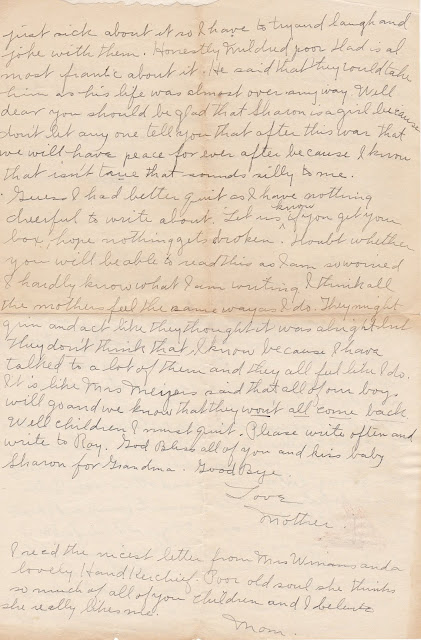 just sick about it so I have to try and laugh and
joke with them. Honestly Mildred poor Dad is al
most frantic about it. He said that they could take
him as his life was almost over any way. Well
dear you should be glad that Sharon is a girl because
don't let any one tell you that after this war that
we will have peace for ever after because I know
that isn't true that sounds silly to me.
Guess I had better quit as I have nothing
cheerful to write about. Let us know if you get your
box, hope nothing gets broken. I doubt whether
you will be able to read this as I am so worried
I hardly know what I am writing. I think all
the mothers feel the same way as I do. They might
grin and act like they thought it was alright but
they don't think that, I know because I have
talked to a lot of them and they all feel like I do.
It is like Mrs Meyers said that all of our boys
will go and we know that they wont all come back
Well children I must quit. Please write often and
write to Ray. God Bless all of you and kiss baby
Sharon for Grandma. Good Bye.
Love
Mother.
I recd the nicest letter from Mrs and a
lovely Hand Kerchief. Poor old soul she thinks
so much of all of you children and I believe
she really likes me.
Mom.